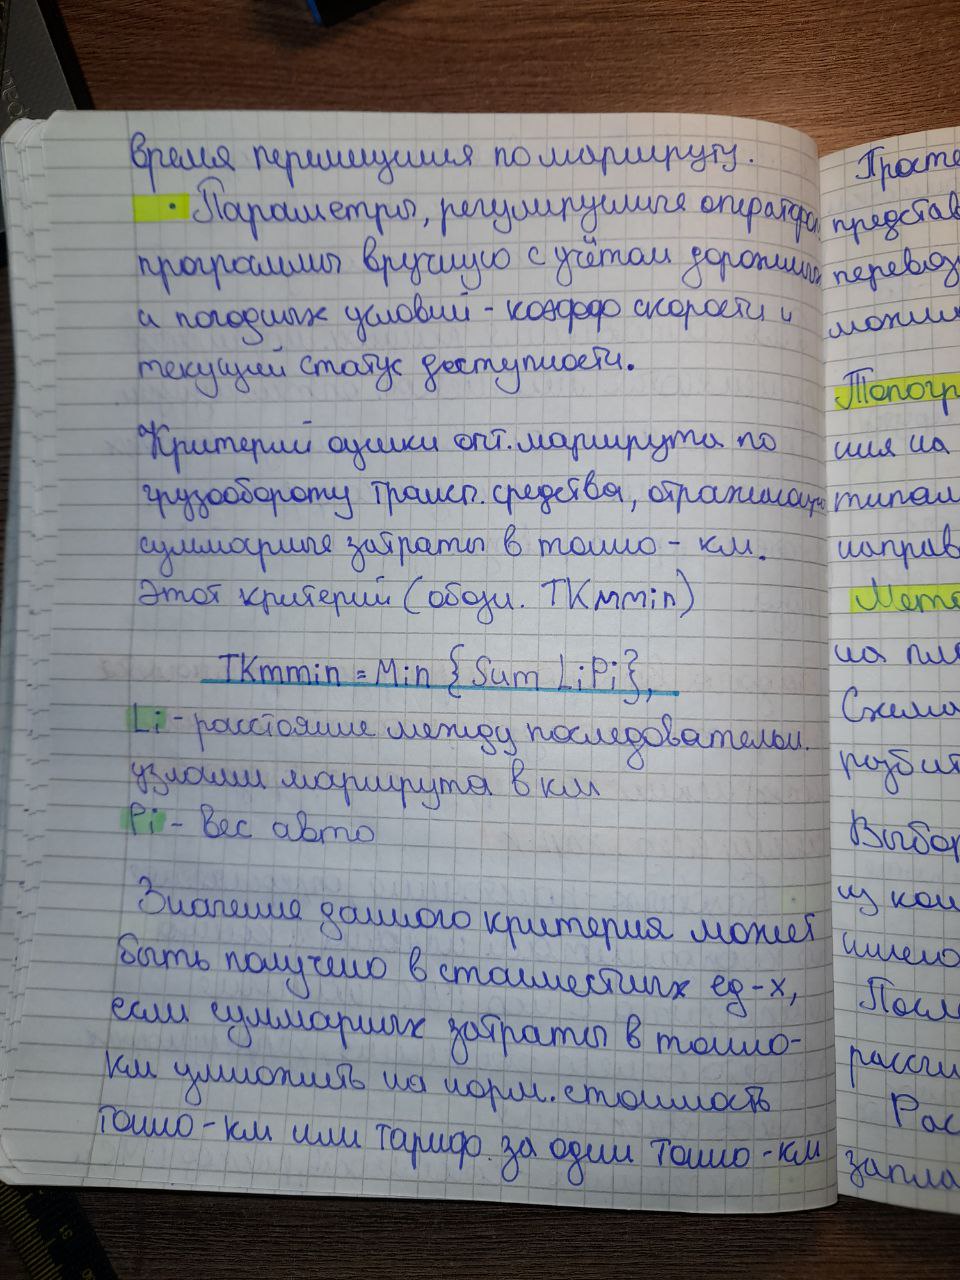 время перемещения по маршруту.
• Параметры, регулируемые оператором
программы вручную с учётом дорожных
и погодных условий - коэфф скорости и
текущий статус доступности.
Критерий оценки опт. маршрута по
грузообороту трансп. средства, отражающ
суммарные затраты в тонно - км.
Этот критерий (обозн. TKmmin)
TKmmin = Min {Sum LiPi},
Li - расстояние между последовательн.
узлами маршрута в км
Pi - Вес авто
Значение данного критерия может
быть получено в стоимостных ед-х,
если суммарных затраты в тонно-
км умножить на норм. стоимость
тонно - км или тариф. за один тонно - км
Просте
представ
перевоз
можн
Топогр
ния на
типам
направ
Мето
на пл
Схема
разбит
Выбор
из ком
имено
Посл
рассчи
Рас
запла